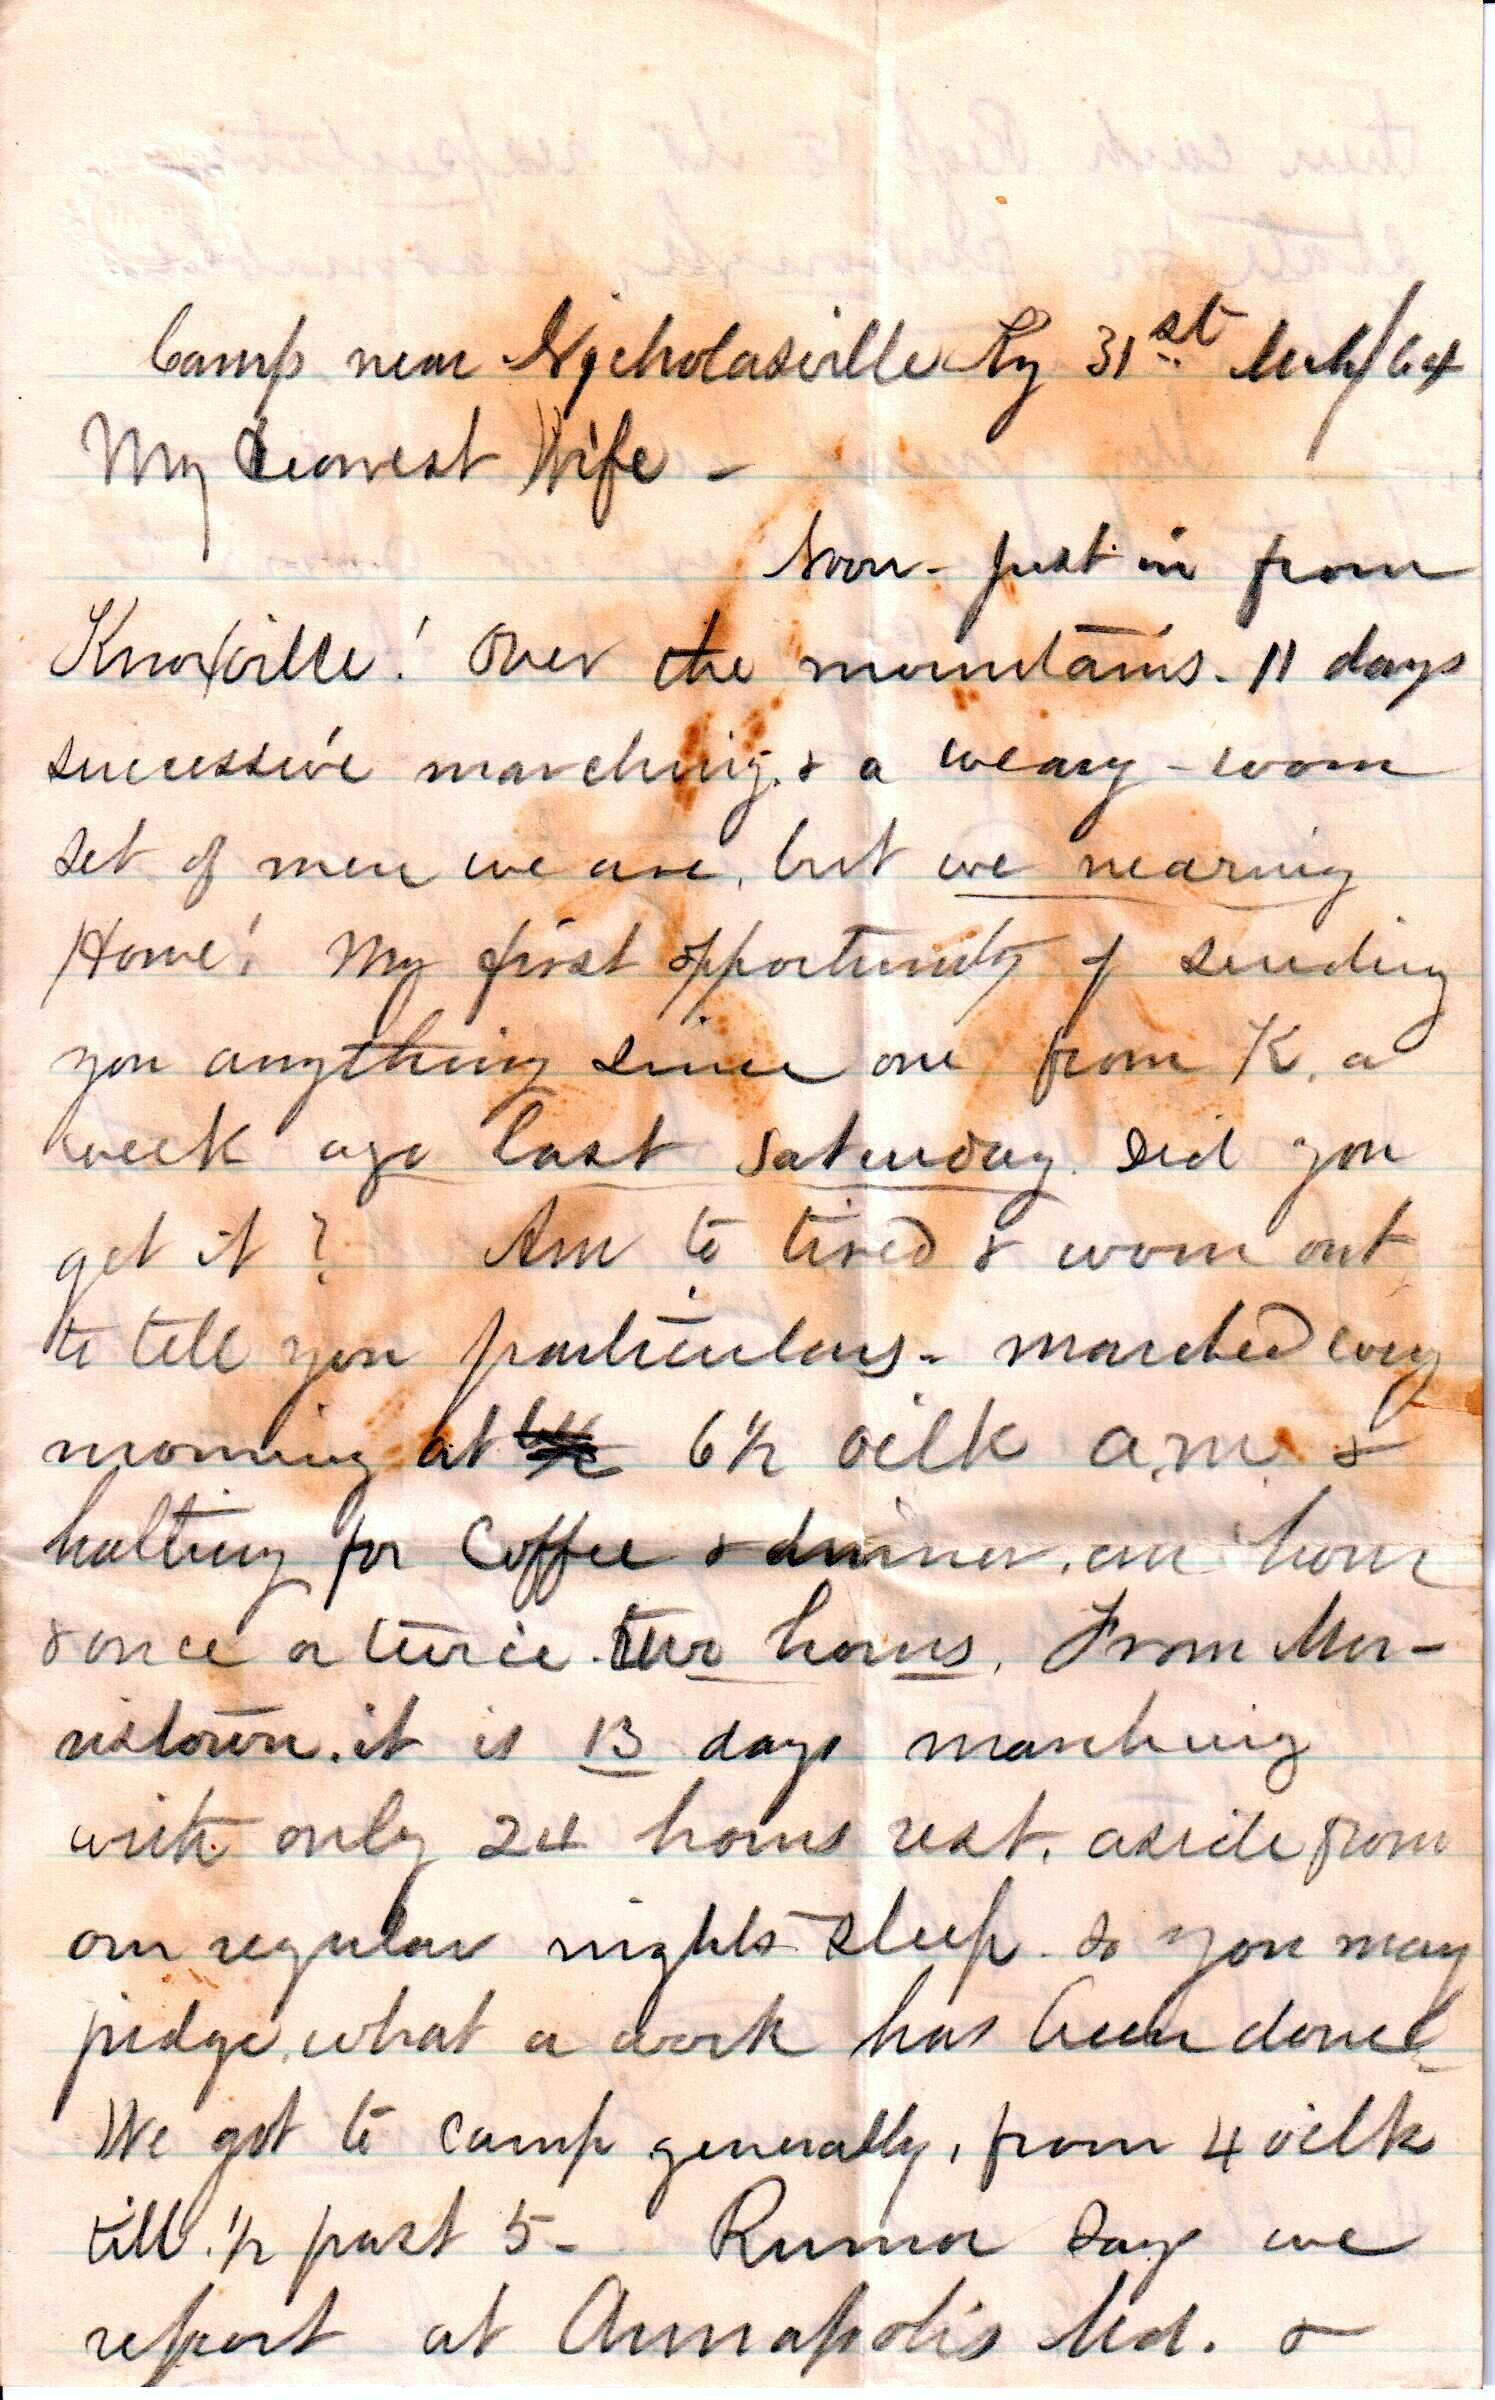 Camp near Nicholasville Ky 31st Mch/64
My dearest Wife -
Noon - just in from
Knoxville! Over the mountains. 11 days
successive marching, & a weary - worn
set of men we are, but we nearing
Home! My first opportunity of sending
you anything since one from K. a
week ago last Saturday. Did you
get it? Am to tired & worn out
to tell you particulars - marched every
morning at 6½ oclk a.m. &
halting for Coffee & dinner, an hour
& once or twice two hours. From Mor-
ristown, it is 13 days marching
with only 24 hours rest, aside from
our regular nights sleep. So you may
judge, what a work has been done
We got to camp generally, from 4 oclk
till ½ past 5 - Rumor says we
report at Annapolis Md. &